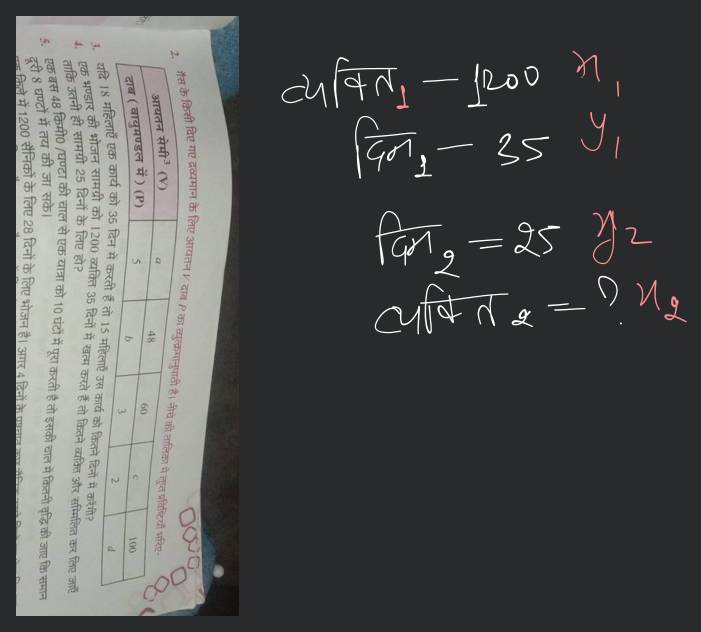 2. गैस के किसी दिए गए द्रव्यमान के लिए आयतन V दाब P का व्युत्क्रमानुपाती है। नीचे की तालिका में लुप्त प्रविष्टियाँ भरिए-
आयतन सेमी³ (V) a 48 60 c 100
दाब ( वायुमण्डल में ) (P) 5 b 3 2 d
3. यदि 18 महिलाएँ एक कार्य को 35 दिन में करती हैं तो 15 महिलाएँ उस कार्य को कितने दिनों में करेंगी?
4. एक भण्डार की भोजन सामग्री को 1200 व्यक्ति 35 दिनों में खत्म करते हैं तो कितने व्यक्ति और सम्मिलित कर लिए जाएँ
ताकि उतनी ही सामग्री 25 दिनों के लिए हो?
5. एक बस 48 किमी0 /घण्टा की चाल से एक यात्रा को 10 घंटों में पूरा करती है तो इसकी चाल में कितनी वृद्धि की जाए कि समान
दूरी 8 घण्टों में तय की जा सके।
किले में 1200 सैनिकों के लिए 28 दिनों के लिए भोजन है। अगर 4 दिनों के
व्यक्ति₁ — 1200 x₁
दिन₁ — 35 y₁
दिन₂ = 25 y₂
व्यक्ति₂ = ? x₂